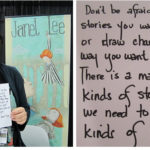 Janet Lee
Don't be afraid
stories you wa
or draw char
way you want
There is a ma
kinds of sto
we need to
kinds of